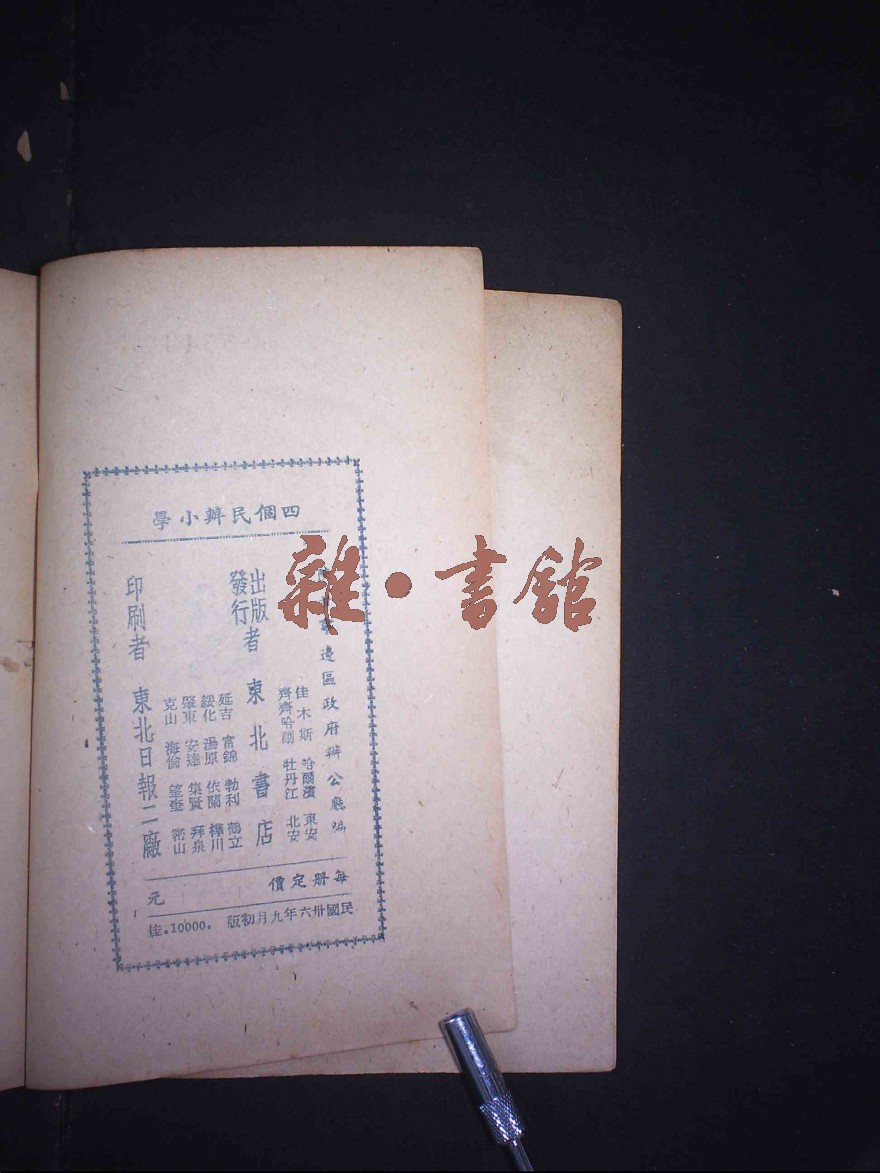 四個民辦小學
邊區政府辦公廳編
佳木斯 哈爾濱 東安
齊齊哈爾 牡丹江 北安
出版
發行者 東北書店
延吉 富錦 勃利 鶴立
綏化 湯原 依蘭 樺川
肇東 安達 集賢 拜泉
克山 海倫 望奎 密山
印刷者 東北日報二廠
每册定價 元
民國卅六年九月初版 .10000.佳
雜·書館